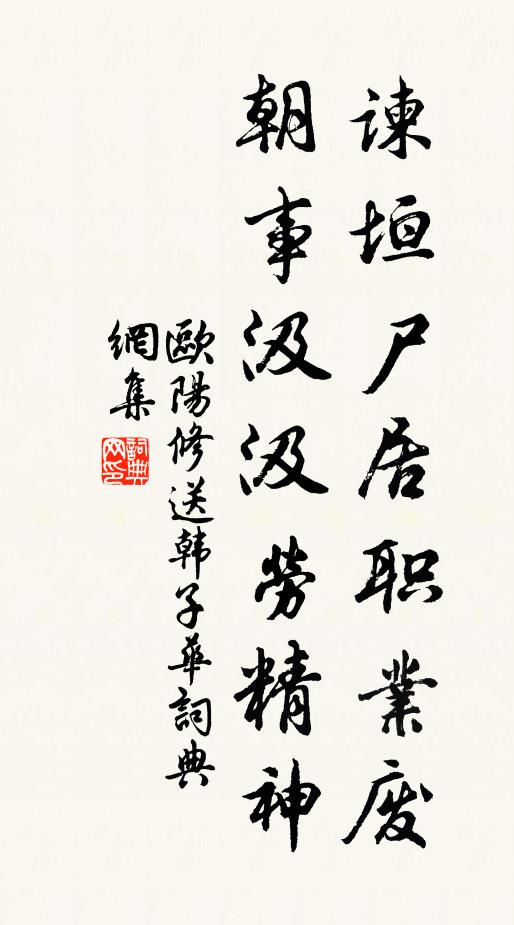 谏垣尸居职業废
朝事汲汲勞精神
歐陽修送韩子華詞典
網集
詞典
网印